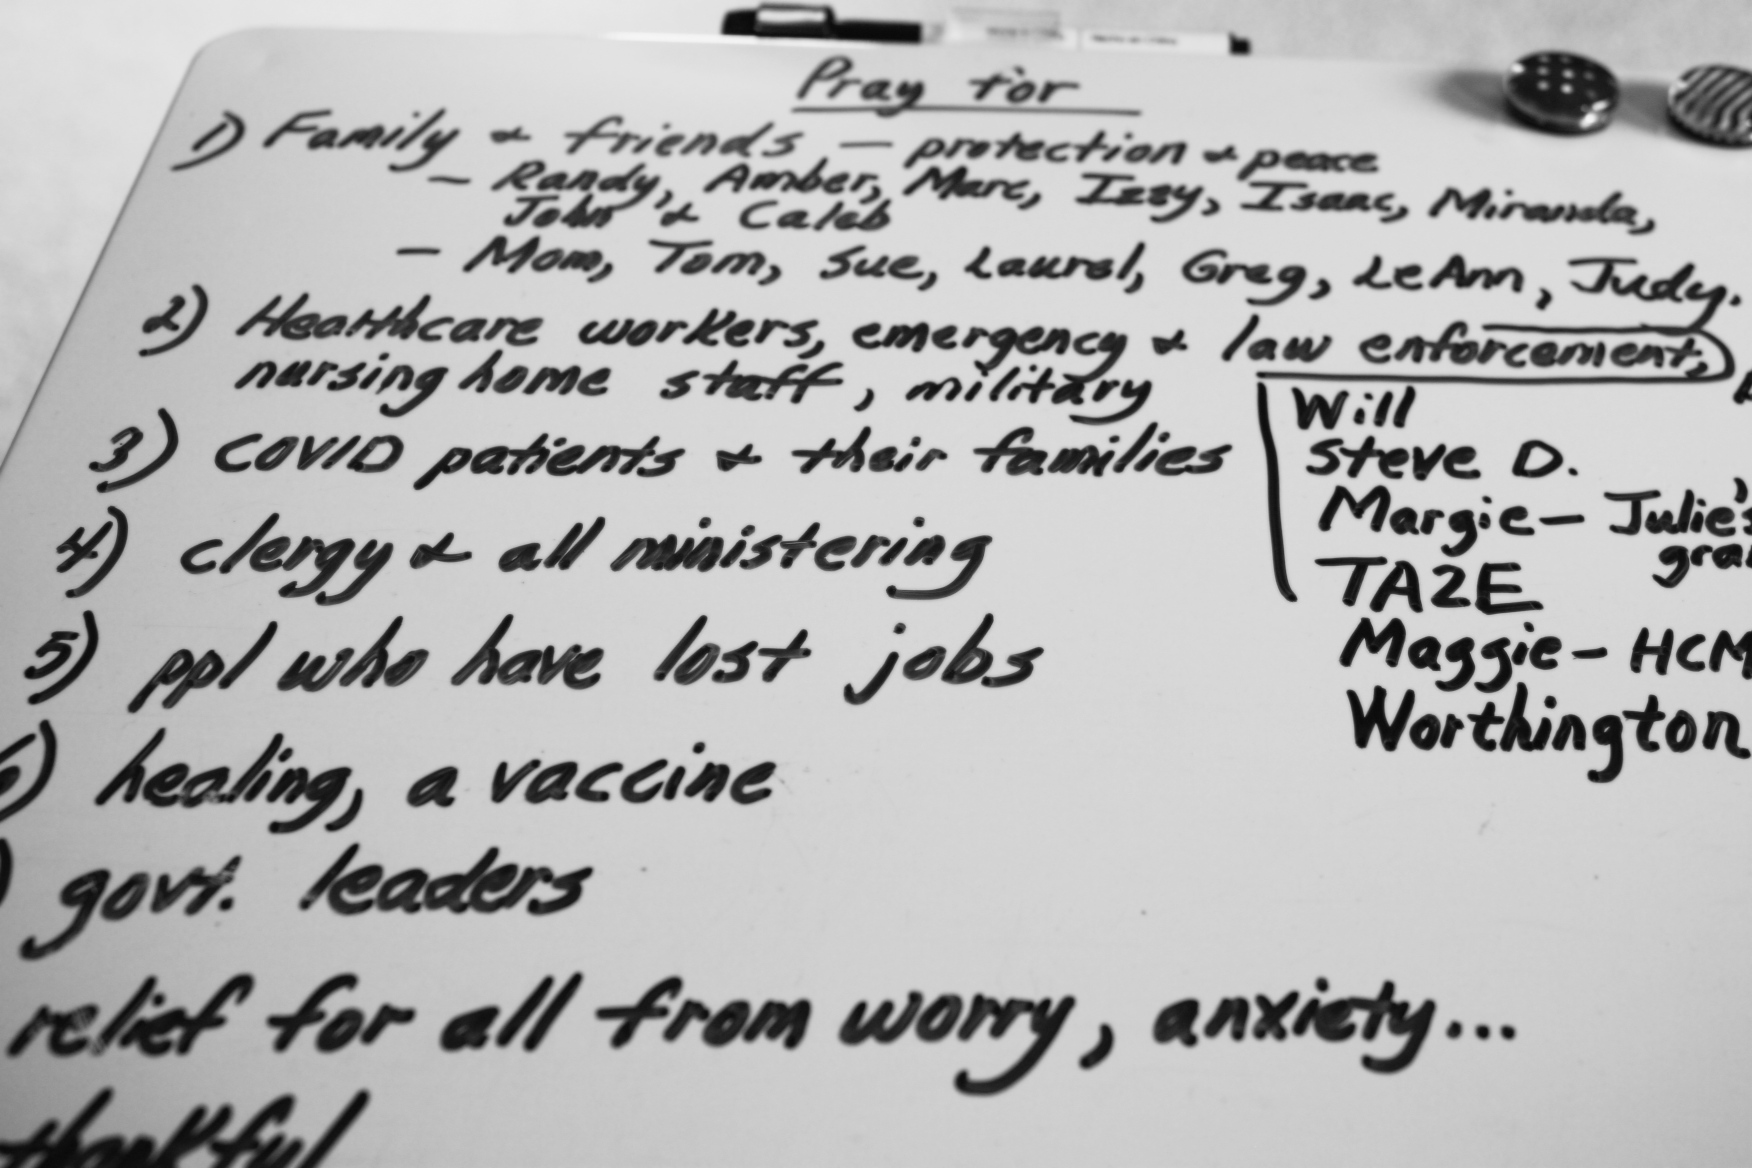 Pray for
1) Family & friends — protection & peace
— Randy, Amber, Marc, Izzy, Isaac, Miranda,
John & Caleb
— Mom, Tom, Sue, Laurel, Greg, LeAnn, Judy.
2) Healthcare workers, emergency & law enforcement,
nursing home staff, military
Will
3) COVID patients & their families
Steve D.
Margie — Julie's
4) clergy & all ministering
TA2E
5) ppl who have lost jobs
Maggie — HCM
Worthington
6) healing, a vaccine
) govt. leaders
relief for all from worry, anxiety...
thankful